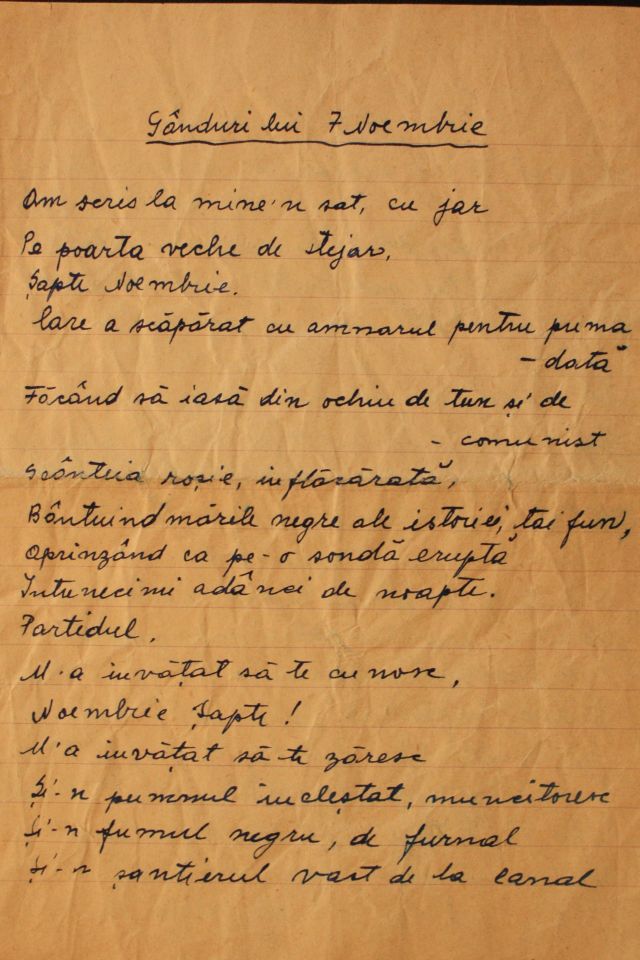 Gânduri lui 7 Noembrie
Am scris la mine'n sat, cu jar
Pe poarta veche de stejar,
Șapte Noembrie.
Care a scăpărat cu amnarul pentru prima
- dată
Făcând să iasă din ochiu de tun și de
- comunist
Scânteia roșie, inflăcărată,
Bântuind mările negre ale istoriei, taifun,
Aprinzând ca pe-o sondă eruptă
Intunecimi adânci de noapte.
Partidul,
M'a invățat să te cunosc,
Noembrie Șapte!
M'a invățat să-te zăresc
Și-n pumnul incleștat, muncitoresc
Și-n fumul negru, de furnal
Și-n șantierul vast de la Canal